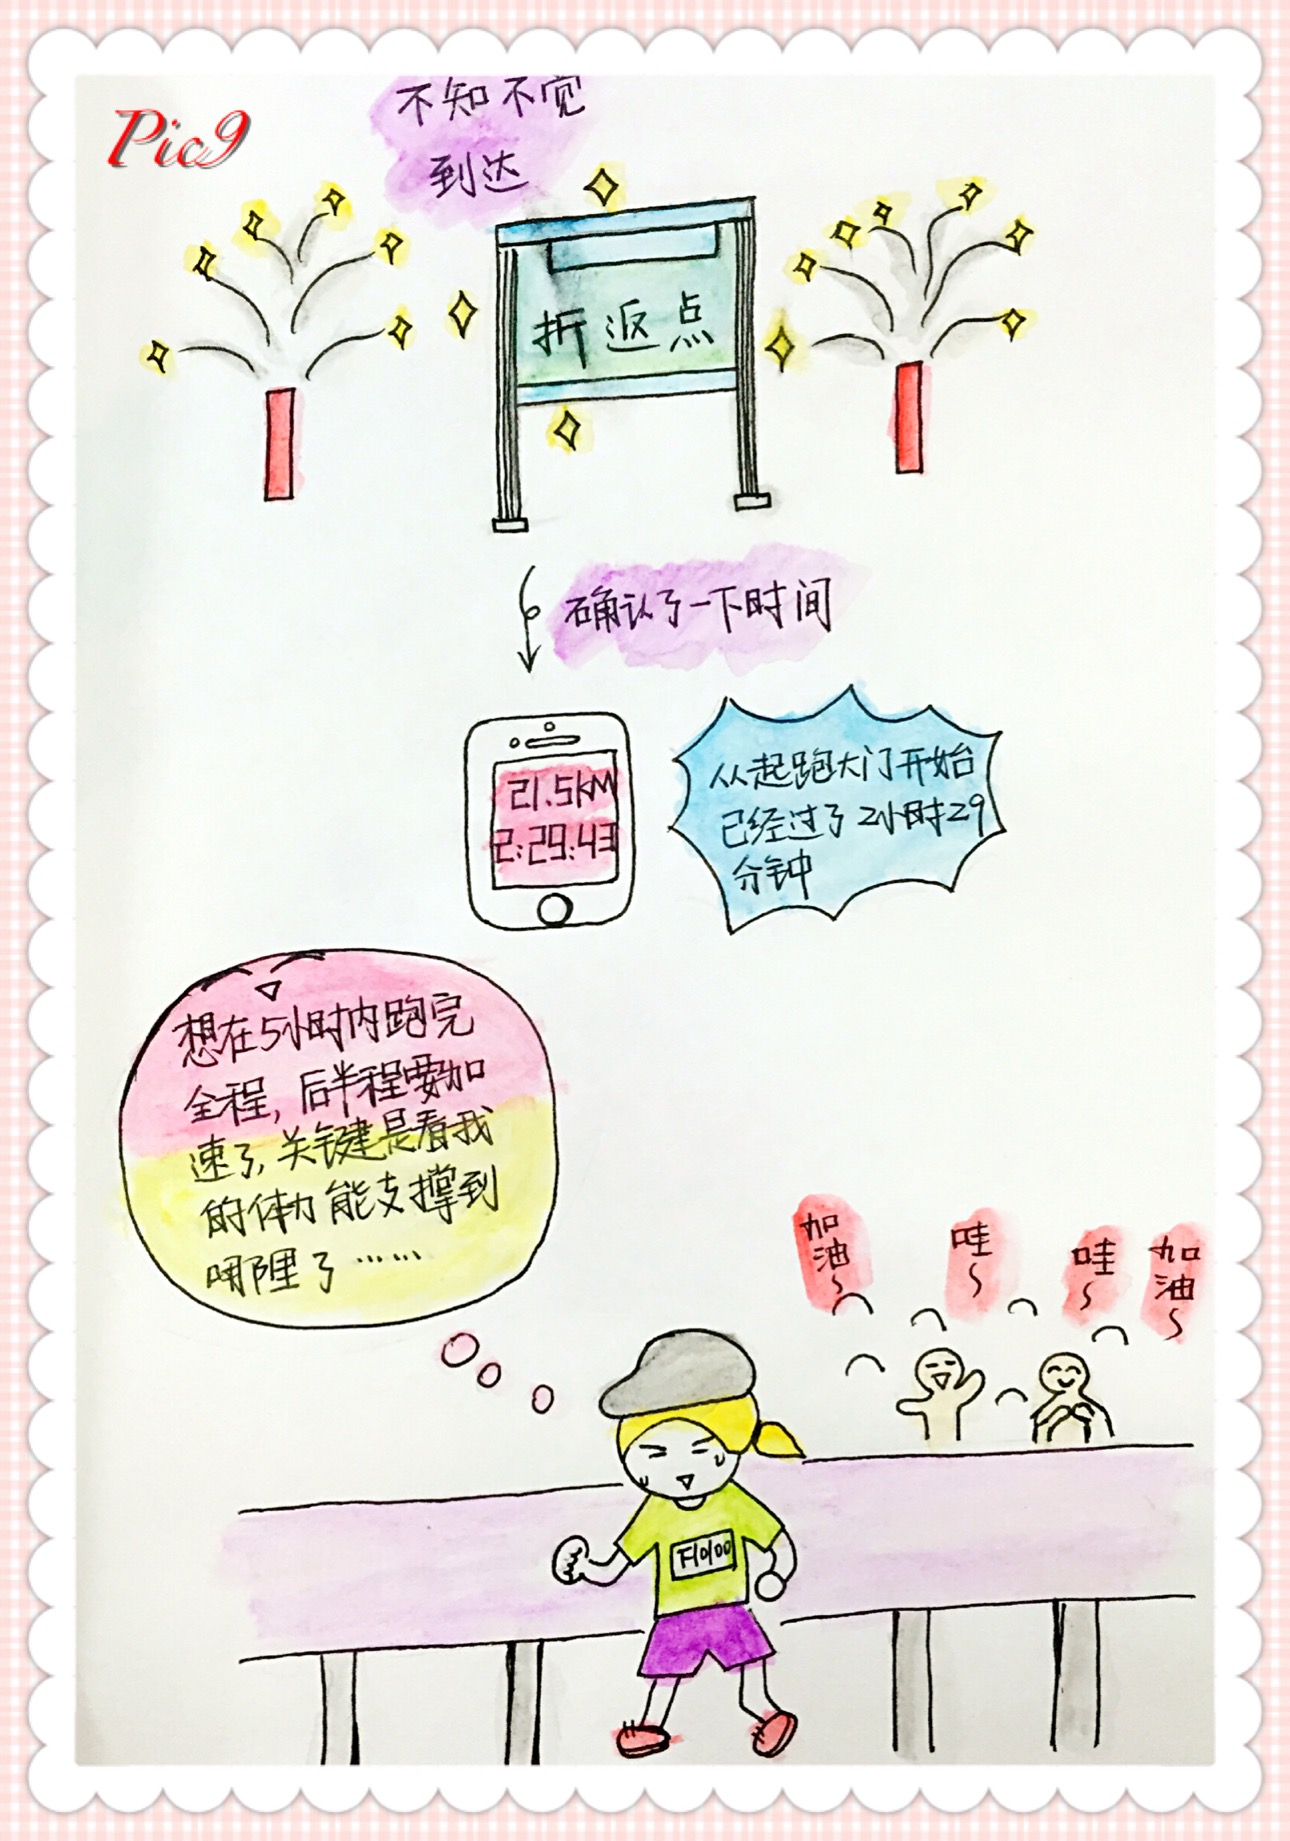 Pic9
不知不觉
到达
折返点
确认了一下时间
21.5KM
2:29:43
从起跑大门开始
已经过了2小时29
分钟
想在5小时内跑完
全程，后半程要加
速了，关键是看我
的体力能支撑到
哪里了……
加油~
哇~
哇~
加油~
F10100